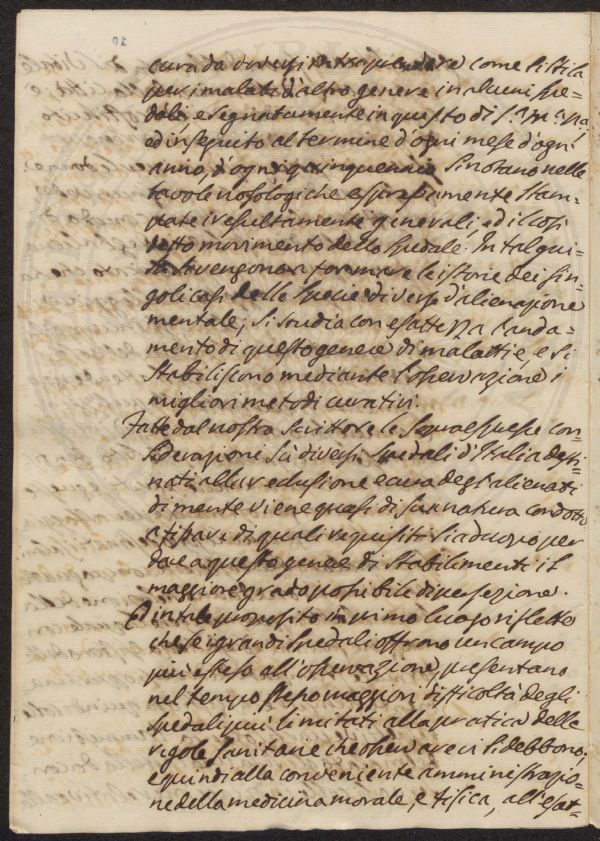 cura da doversi intraprendere come si stila
per i malati d'altro genere in alcuni spe-
dali, e segnatamente in questo di S.ta M.a Na
ed in seguito al termine d'ogni mese d'ogni
anno, d'ogni quinquennio si notano nelle
tavole nosologiche espressamente stam-
pate i resultamenti generali, ed il così
detto movimento dello spedale. In tal gui-
sa si vengono a formare le istorie dei sin-
goli casi delle specie diverse d'alienazione
mentale; si studia con esattezza l'anda-
mento di questo genere di malattie, e si
stabiliscono mediante l'osservazione i
migliori metodi curativi.
Fatte dal nostro scrittore le sopraespresse con-
siderazioni su i diversi spedali d'Italia desti-
nati alla reclusione e cura degl'alienati
di mente viene quasi di sua natura condotto
a di quali requisiti sia d'uopo per
dare a questo genere di stabilimenti il
maggiore grado possibile di perfezione.
E in tale proposito in primo luogo riflette
che se i grandi spedali offrono un campo
più esteso all'osservazione, presentano
nel tempo stesso maggiori difficoltà degli
spedali più limitati alla pratica delle
regole sanitarie che osservare ci si debbono,
e quindi alla conveniente amministrazio-
ne della medicina morale, e fisica, all'esat-